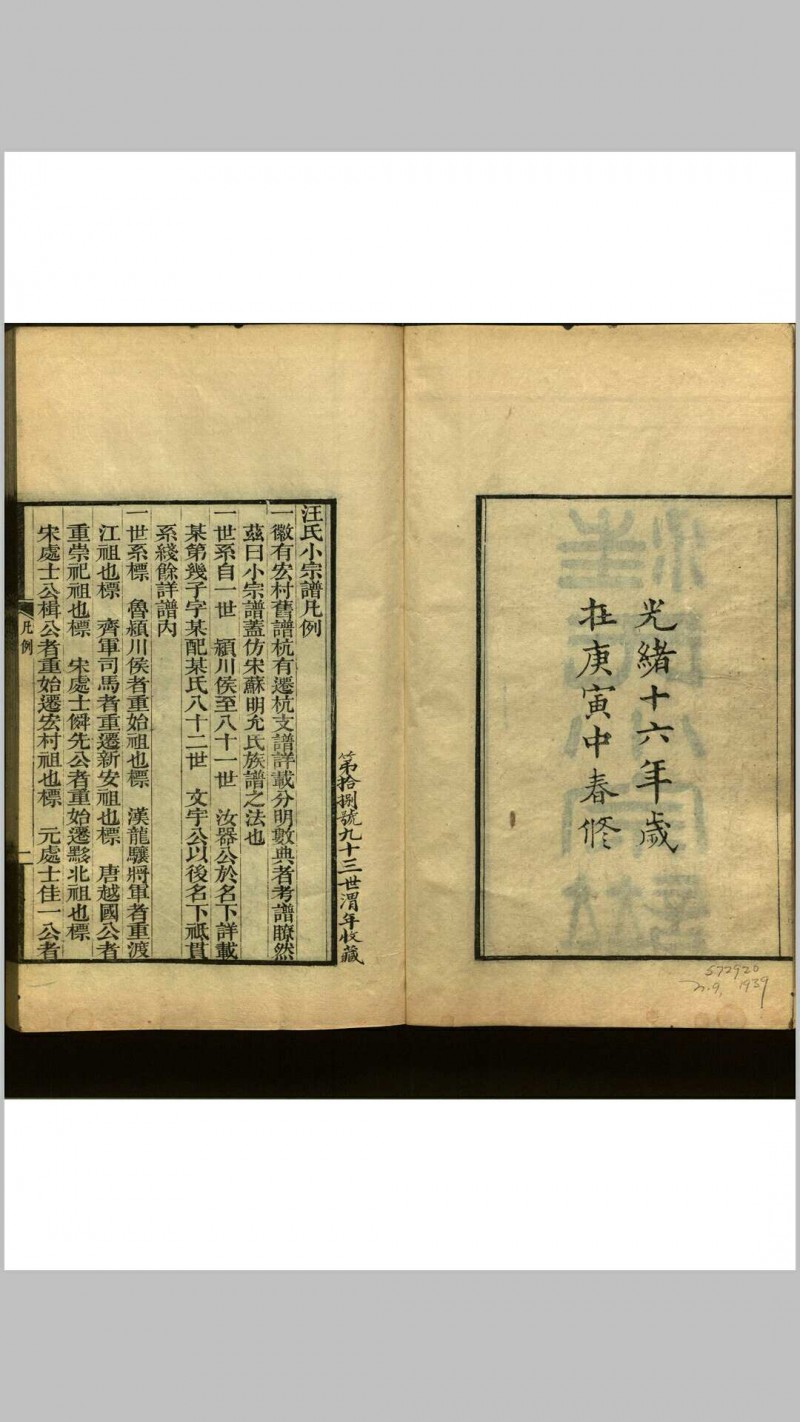 光緒十六年歲
在庚寅中春修
572920
第拾捌號九十三世渭年收藏
汪氏小宗譜凡例
一徽有宏村舊譜杭有遷杭支譜詳載分明數典者考譜瞭然
茲曰小宗譜蓋仿宋蘇明允氏族譜之法也
一世系自一世　潁川侯至八十一世　汝器公於名下詳載
某第幾子字某配某氏八十二世　文宇公以後名下祇貫
系綫餘詳譜內
一世系標　魯潁川侯者重始祖也標　漢龍驤將軍者重渡
江祖也標　齊軍司馬者重遷新安祖也標　唐越國公者
重崇祀祖也標　宋處士僢先公者重始遷黟北祖也標
宋處士公楫公者重始遷宏村祖也標　元處士佳一公者
凡例
一